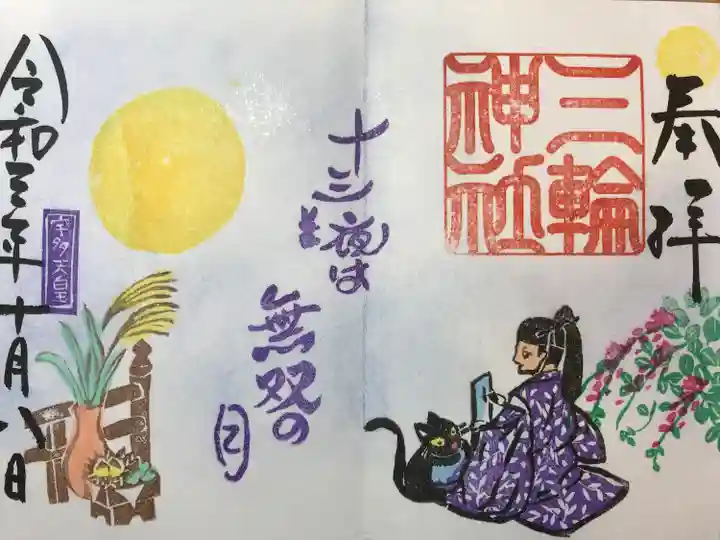 奉拝
三輪
神社
十三夜は
無双の
月
宇多天皇
令和三年十月八日